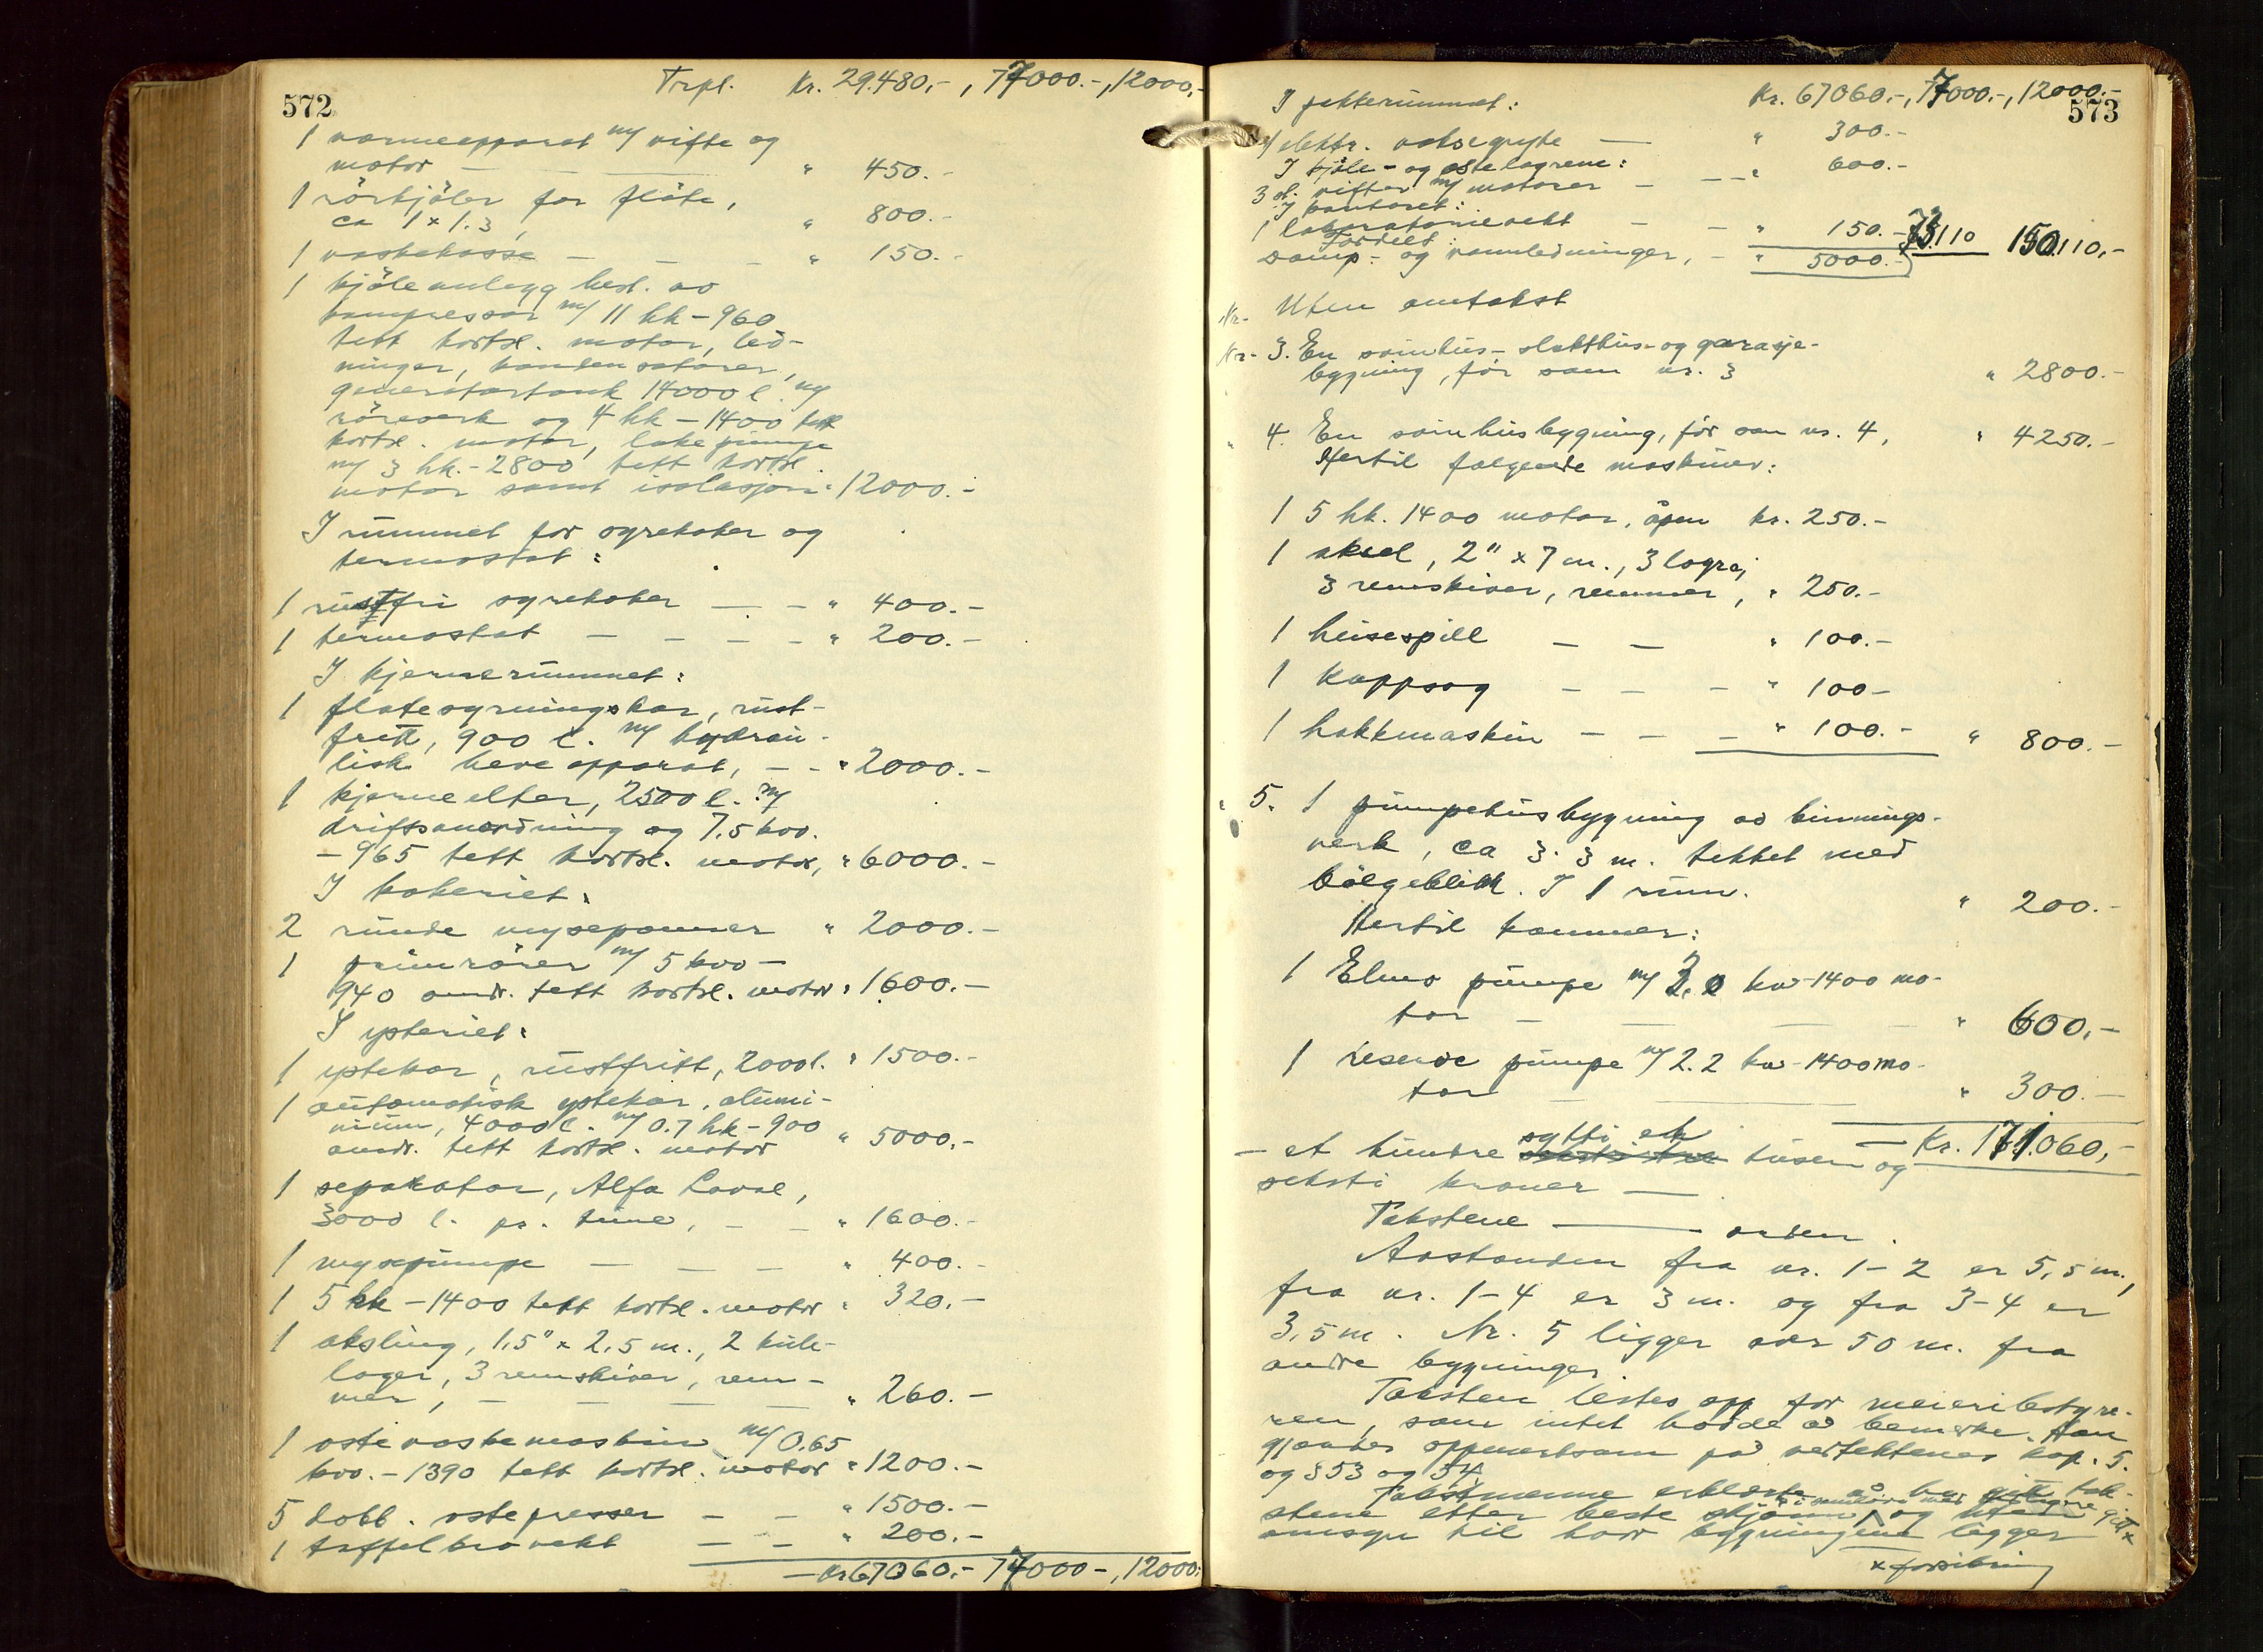 572
Trpl. Kr. 29.480,-, 77000.-, 12000,-
1 varmeapparat m/ vifte og
motor — — — " 450.-
1 rörkjöler for flöte,
ca 1 x 1.3, " 800.-
1 vaskekasse — — — " 150.-
1 kjöleanlegg best. av
kompressor m/ 11 hk - 960
tett kortsl. motor, led-
ninger, kondensatorer,
generatortank 14000 l. m/
röreverk og 4 hk - 1400 tett
kortsl. motor, lakepumpe
m/ 3 hk. - 2800 tett kortsl.
motor samt isolasjon " 12000.-
I rummet for syrekoker og
termostat:
1 rustfri syrekoker — — " 400.-
1 termostat — — — — " 200.-
I kjernerummet:
1 flötesyrningskar, rust-
fritt, 900 l. m/ hydrau-
lisk heveapparat, — — " 2000.-
1 kjerneelter, 2500 l. m/
driftsanordning og 7,5 kw.
- 965 tett kortsl. motor, " 6000.-
I kokeriet:
2 runde mysepanner " 2000.-
1 primrörer m/ 5 kw -
940 omdr. tett kortsl. motor " 1600.-
I ysteriet:
1 ystekar, rustfritt, 2000 l. " 1500.-
1 automatisk ystekar, alumi-
nium, 4000 l. m/ 0.7 hk - 900
omdr. tett kortsl. motor " 5000.-
1 separator, Alfa Laval,
3000 l. pr. time, — — " 1600.-
1 mysepumpe — — — " 400.-
1 5 hk - 1400 tett kortsl. motor " 320.-
1 aksling, 1,5" x 2,5 m., 2 kule-
lager, 3 remskiver, rem-
mer, — — — — " 260.-
1 ostevaskemaskin m/ 0,65
kw. - 1390 tett kortsl. motor " 1200.-
5 dobb. ostepresser — — " 1500.-
1 taffelbrovekt — — " 200.-
— Kr 67060.- 77000-, 12000.-
573
Kr. 67060.-, 77000.-, 12000.-
I pakkerummet:
1 elektr. voksegryte — " 300.-
I kjöle- og ostelagrene:
3 st. vifter m/ motorer — — " 600.-
I kontoret:
1 laboratorievekt — — " 150.-
Fordelt:
Damp- og vannledninger, — " 5000.- 73110 150.110,-
Nr. Uten omtakst
Nr. 3. En svinhus- slakthus- og garasje-
bygning, för som nr. 3 " 2800.-
" 4. En svinhusbygning, för som nr. 4, " 4250.-
Hertil fölgende maskiner:
1 5 hk. 1400 motor, åpen kr. 250.-
1 aksel, 2" x 7 m., 3 lagre,
3 remskiver, remmer, " 250.-
1 heisespill — — " 100.-
1 Kappsag — — — " 100-
1 hakkmaskin — — — " 100.- " 800.-
" 5. 1 pumpehusbygning av binnings-
verk, ca 3 · 3 m. tekket med
bölgeblikk. I 1 rum. " 200.-
Hertil kommer:
1 Elmo pumpe m/ 2,2 kw - 1400 mo-
tor — — — " 600,-
1 reserve pumpe m/ 2.2 kw - 1400 mo-
tor — — " 300.-
— Kr. 171.060,-
sytti en
— et hundre tusen og
seksti kroner —
Takstene — orden.
Avstanden fra nr. 1 - 2 er 5,5 m.,
fra nr. 1 - 4 er 3 m. og fra 3 - 4 er
3,5 m. Nr. 5 ligger over 50 m. fra
andre bygninger.
Taksten lestes opp for meieribestyre-
ren, som intet hadde å bemerke. Han
gjordes oppmerksom på vedtektenes kap. 5.
og § 53 og 54.
Takstmenne erklærte å ha gitt tak-
stene efter beste skjönn og uten
omsyn til hvor bygningene ligger
x forsikring